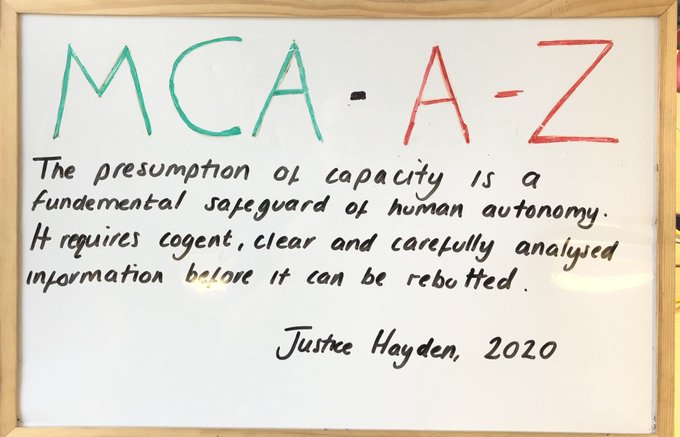 MCA - A-Z
The presumption of capacity is a
fundemental safeguard of human autonomy.
It requires cogent, clear and carefully analysed
information before it can be rebutted.
Justice Hayden, 2020